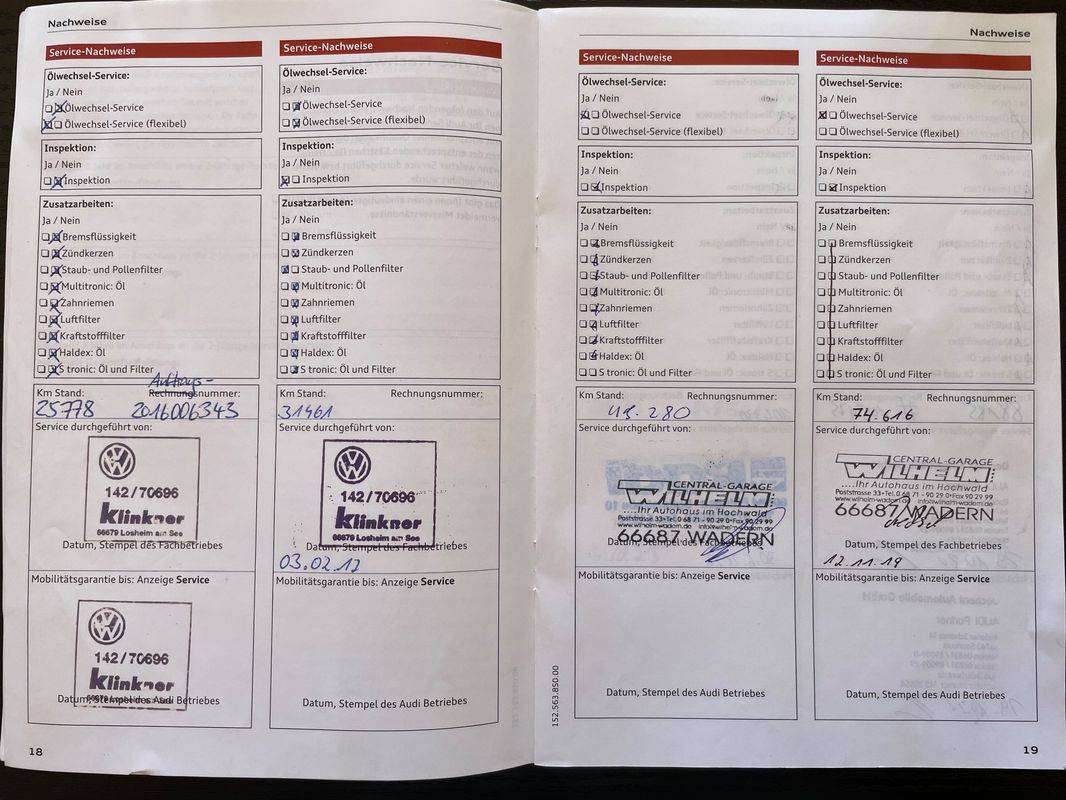 Nachweise
Service-Nachweise
Ölwechsel-Service:
Ja / Nein
Ölwechsel-Service
Ölwechsel-Service (flexibel)
Inspektion:
Ja / Nein
Inspektion
Zusatzarbeiten:
Ja / Nein
Bremsflüssigkeit
Zündkerzen
Staub- und Pollenfilter
Multitronic: Öl
Zahnriemen
Luftfilter
Kraftstofffilter
Haldex: Öl
S tronic: Öl und Filter
Auftrags-
Km Stand: Rechnungsnummer:
25778 2016006343
Service durchgeführt von:
142/70696
Klinkner
66679 Losheim am See
Datum, Stempel des Fachbetriebes
Mobilitätsgarantie bis: Anzeige Service
142/70696
Klinkner
66679 Losheim am See
Datum, Stempel des Audi Betriebes
18
Service-Nachweise
Ölwechsel-Service:
Ja / Nein
Ölwechsel-Service
Ölwechsel-Service (flexibel)
Inspektion:
Ja / Nein
Inspektion
Zusatzarbeiten:
Ja / Nein
Bremsflüssigkeit
Zündkerzen
Staub- und Pollenfilter
Multitronic: Öl
Zahnriemen
Luftfilter
Kraftstofffilter
Haldex: Öl
S tronic: Öl und Filter
Km Stand: Rechnungsnummer:
31461
Service durchgeführt von:
142/70696
Klinkner
66679 Losheim am See
Datum, Stempel des Fachbetriebes
03.02.17
Mobilitätsgarantie bis: Anzeige Service
Datum, Stempel des Audi Betriebes
Nachweise
Service-Nachweise
Ölwechsel-Service:
Ja / Nein
Ölwechsel-Service
Ölwechsel-Service (flexibel)
Inspektion:
Ja / Nein
Inspektion
Zusatzarbeiten:
Ja / Nein
Bremsflüssigkeit
Zündkerzen
Staub- und Pollenfilter
Multitronic: Öl
Zahnriemen
Luftfilter
Kraftstofffilter
Haldex: Öl
S tronic: Öl und Filter
Km Stand: Rechnungsnummer:
49.280
Service durchgeführt von:
CENTRAL-GARAGE
WILHELM
....Ihr Autohaus im Hochwald
Poststrasse 33•Tel. 0 68 71 - 90 29 0•Fax 90 29 99
www.wilhelm-wadern.de info@wilhelm-wadern.de
66687 WADERN
Datum, Stempel des Fachbetriebes
Mobilitätsgarantie bis: Anzeige Service
Datum, Stempel des Audi Betriebes
152.563.850.00
Service-Nachweise
Ölwechsel-Service:
Ja / Nein
Ölwechsel-Service
Ölwechsel-Service (flexibel)
Inspektion:
Ja / Nein
Inspektion
Zusatzarbeiten:
Ja / Nein
Bremsflüssigkeit
Zündkerzen
Staub- und Pollenfilter
Multitronic: Öl
Zahnriemen
Luftfilter
Kraftstofffilter
Haldex: Öl
S tronic: Öl und Filter
Km Stand: Rechnungsnummer:
74.616
Service durchgeführt von:
CENTRAL-GARAGE
WILHELM
....Ihr Autohaus im Hochwald
Poststrasse 33•Tel. 0 68 71 - 90 29 0•Fax 90 29 99
www.wilhelm-wadern.de info@wilhelm-wadern.de
66687 WADERN
Datum, Stempel des Fachbetriebes
12.11.19
Mobilitätsgarantie bis: Anzeige Service
Datum, Stempel des Audi Betriebes
19